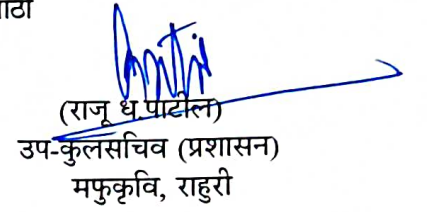 (राजू ध.पाटील)
उप-कुलसचिव (प्रशासन)
मफुकृवि, राहुरी